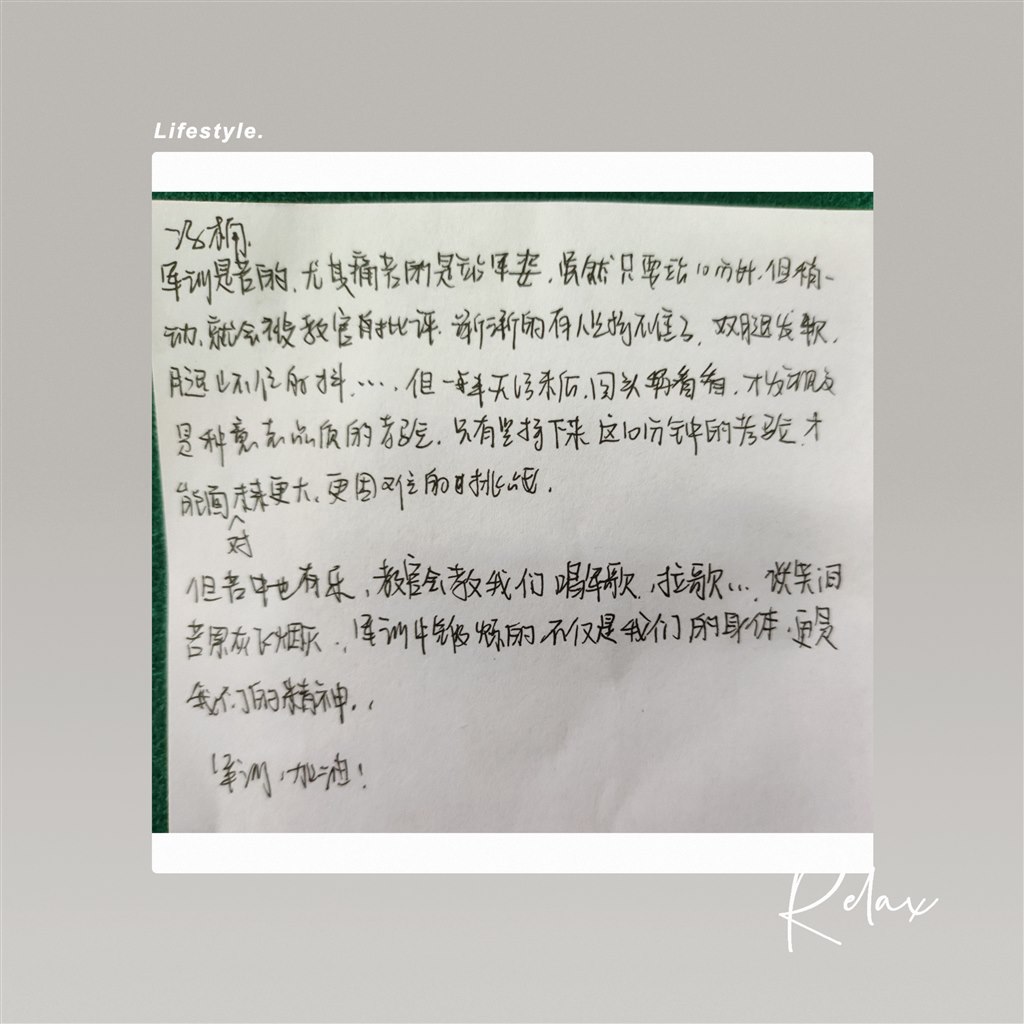 Lifestyle.
军训是苦的,尤其痛苦的是站军姿,虽然只要站10分钟,但稍一
动,就会被教官批评.渐渐的有人坚持不住了,双腿发软,
腿止不住的抖….但一天结束后,回头再看看,才发现这
是种意志品质的考验.只有坚持下来这10分钟的考验,才
能面对未来更大、更困难的挑战.
但苦中也有乐,教官会教我们唱军歌,拉歌…,谈笑间
苦累灰飞烟灭.军训中锻炼的不仅是我们的身体,更是
我们的精神..
军训,加油!
Relax